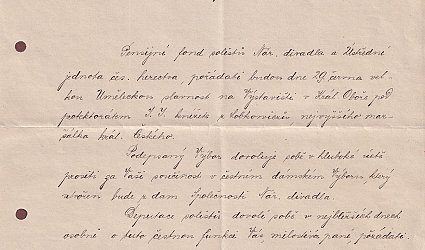 Pensijní fond solistů Nár. divadla a Ústřední
jednota čes. herectva, pořádati budou dne 29. června vel-
kou Uměleckou slavnost na Výstavišti v Král. Oboře pod
protektorátem J. J. knížete z Lobkoviců nejvyššího mar-
šálka král. Českého.
Podepsaný Výbor dovoluje sobě v hluboké úctě
prositi za Vaši součinnost v čestném dámském Výboru, který
utvořen bude z dam Společnosti Nár. divadla.
Deputace solistů dovolí sobě v nejbližších dnech
osobně o tuto čestnou funkci Vás, milostivá paní, požádati.